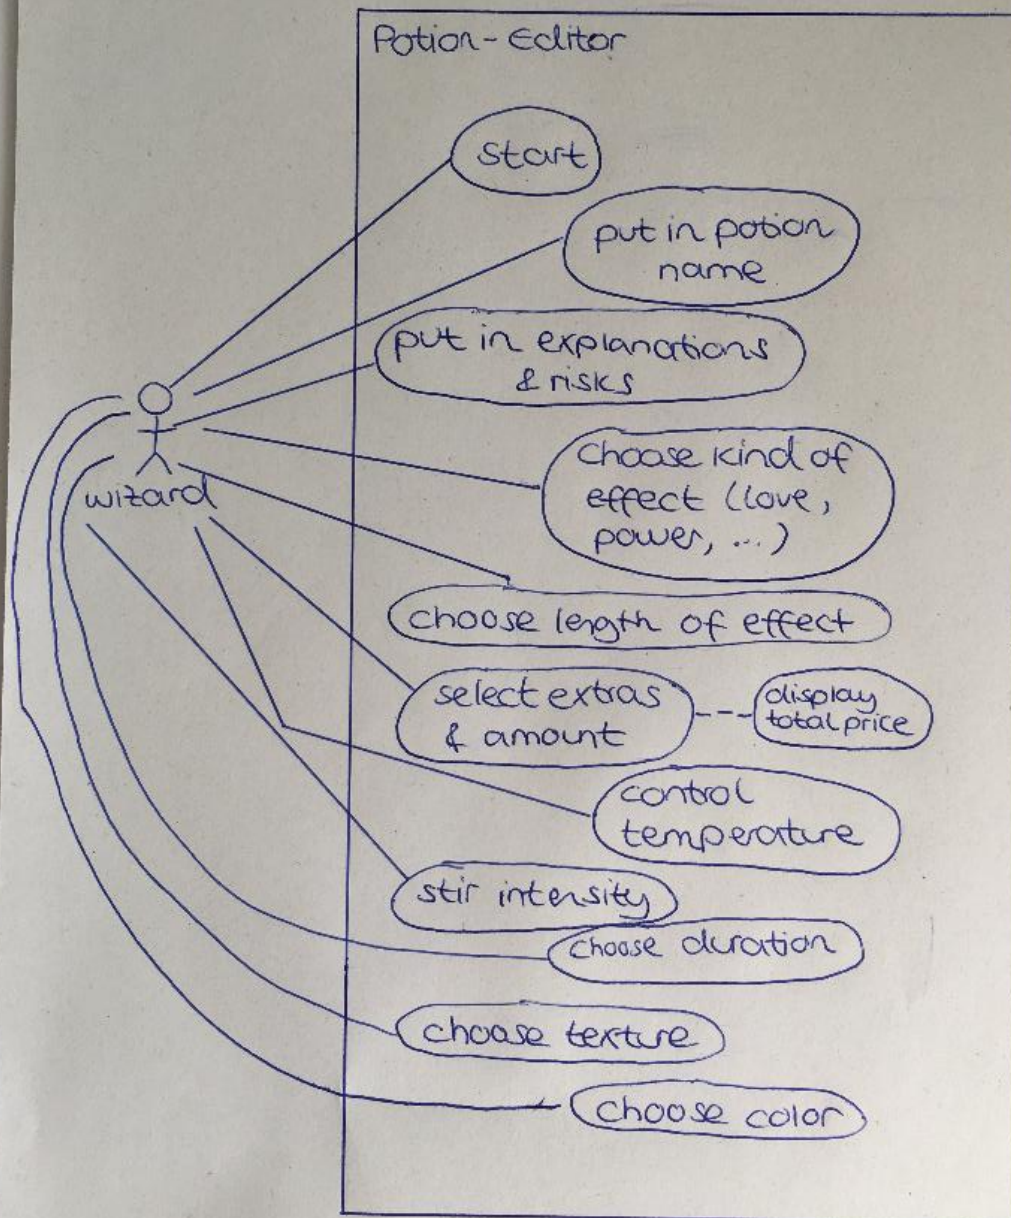 Potion-Editor
start
put in potion
name
put in explanations
& risks
choose kind of
effect (love,
power, ...)
wizard
choose length of effect
select extras
& amount
display
total price
control
temperature
stir intensity
choose duration
choose texture
choose color